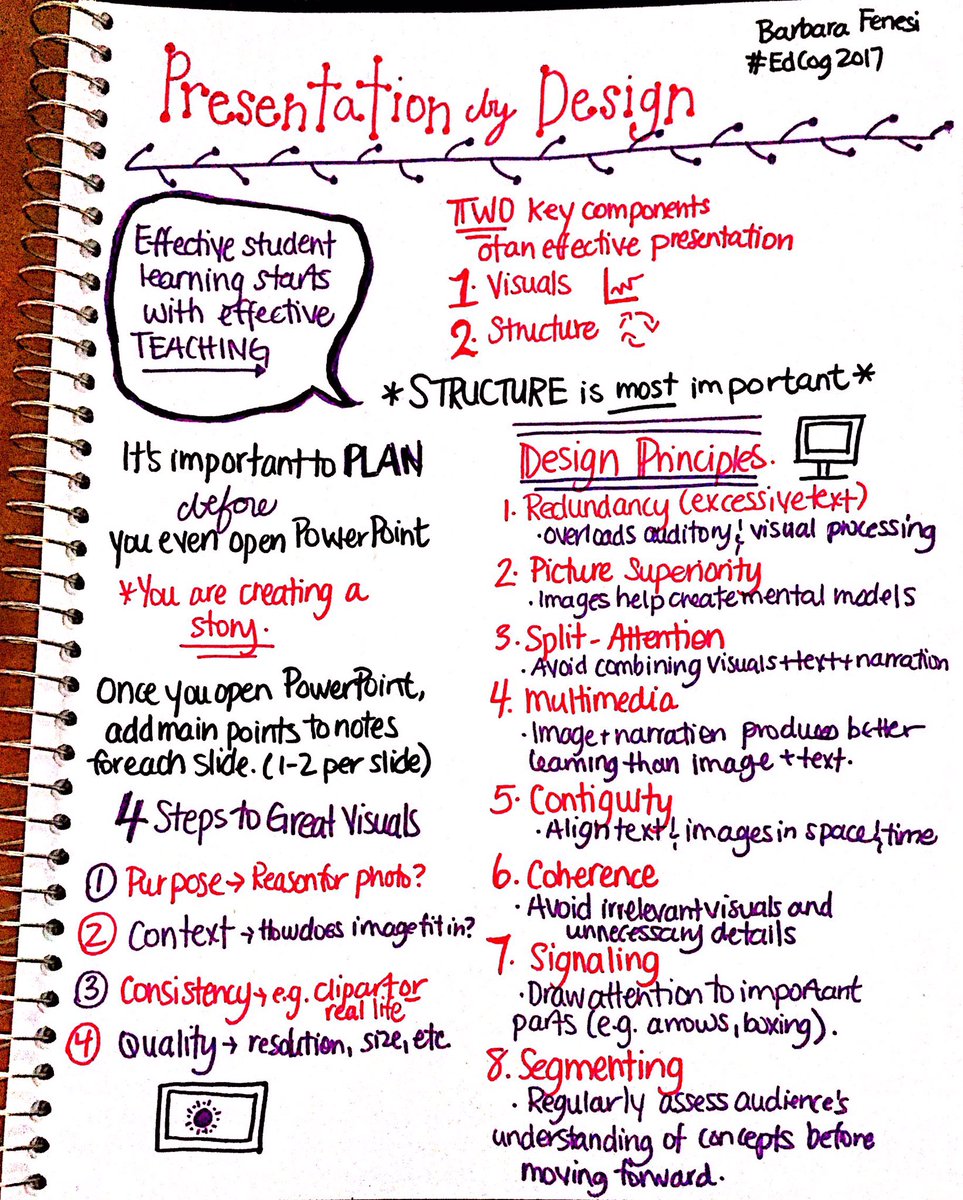 Barbara Fenesi
#EdCog2017
Presentation by Design
Effective student
learning starts
with effective
TEACHING
TWO key components
of an effective presentation
1. Visuals
2. Structure
*STRUCTURE is most important*
It's important to PLAN
before
you even open PowerPoint
*You are creating a
story.
Once you open PowerPoint,
add main points to notes
for each slide. (1-2 per slide)
4 Steps to Great Visuals
1 Purpose → Reason for photo?
2 Context → How does image fit in?
3 Consistency → e.g. clipart or
real life
4 Quality → resolution, size, etc
Design Principles.
1. Redundancy (excessive text)
· overloads auditory & visual processing
2. Picture Superiority
· Images help create mental models
3. Split-Attention
· Avoid combining visuals + text + narration
4. Multimedia
· Image + narration produces better
learning than image + text.
5. Contiguity
· Align text & images in space & time
6. Coherence
· Avoid irrelevant visuals and
unnecessary details
7. Signaling
· Draw attention to important
parts (e.g. arrows, boxing).
8. Segmenting
· Regularly assess audience's
understanding of concepts before
moving forward.